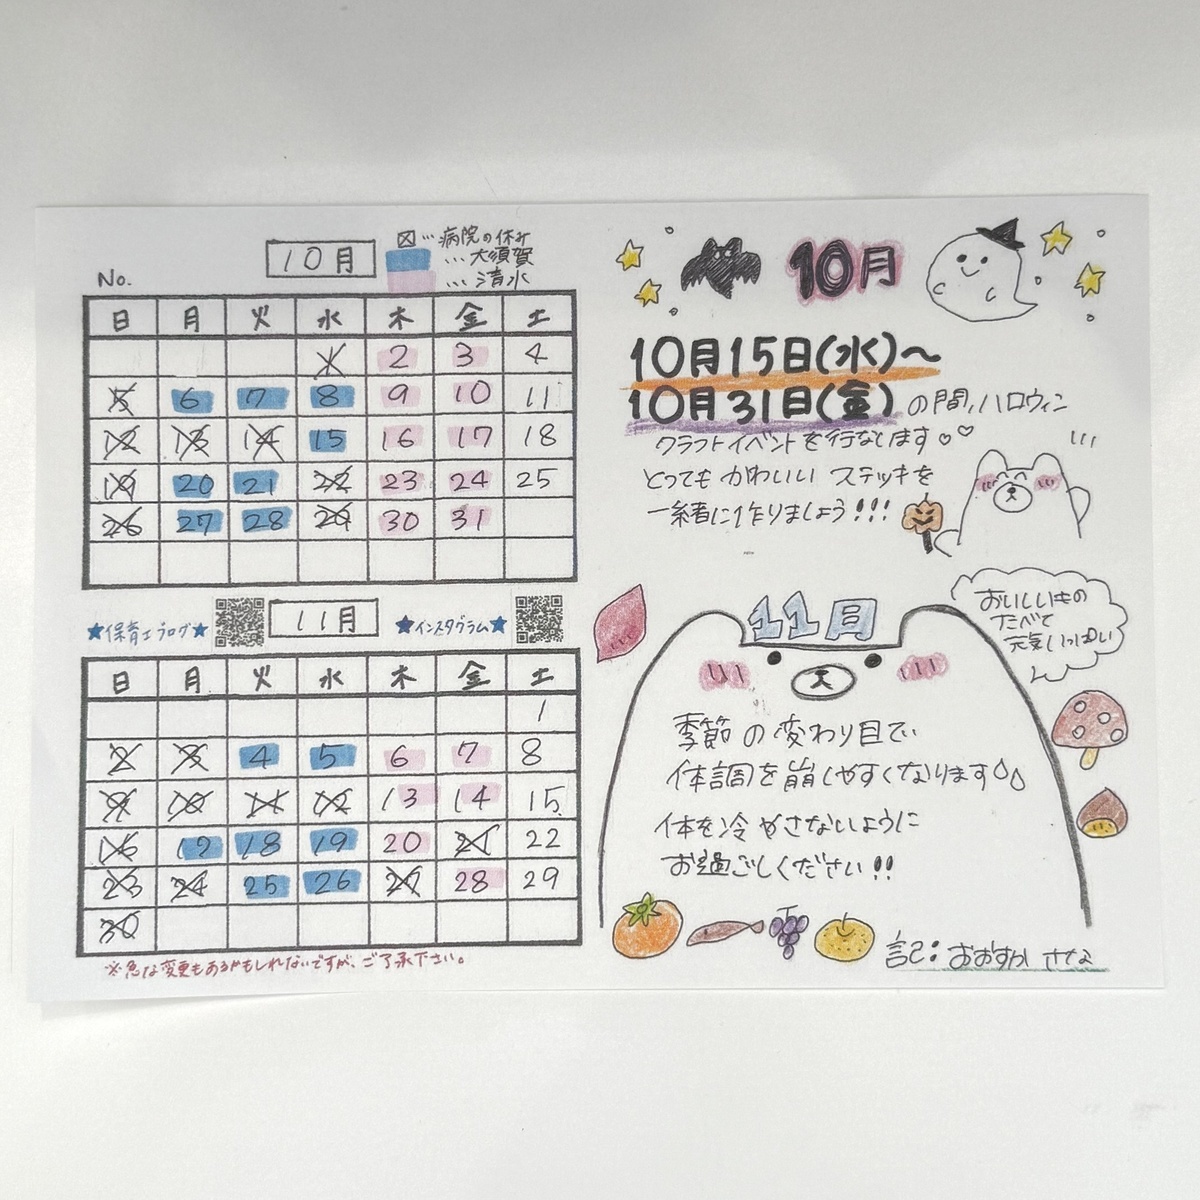 No.
10月
☒…病院の休み
…大須賀
…清水
日 月 火 水 木 金 土
1 2 3 4
5 6 7 8 9 10 11
12 13 14 15 16 17 18
19 20 21 22 23 24 25
26 27 28 29 30 31
★保育士ブログ★
11月
★インスタグラム★
日 月 火 水 木 金 土
1
2 3 4 5 6 7 8
9 10 11 12 13 14 15
16 17 18 19 20 21 22
23 24 25 26 27 28 29
30
※急な変更もあるかもしれないですが、ご了承下さい。
10月
10月15日(水)〜
10月31日(金)の間、ハロウィン
クラフトイベントを行ないます♡♡
とってもかわいいステッキを
一緒に作りましょう!!!
11月
おいしいもの
たべて
元気いっぱい
季節の変わり目で、
体調を崩しやすくなります
体を冷やさないように
お過ごしください!!
記:おおすか